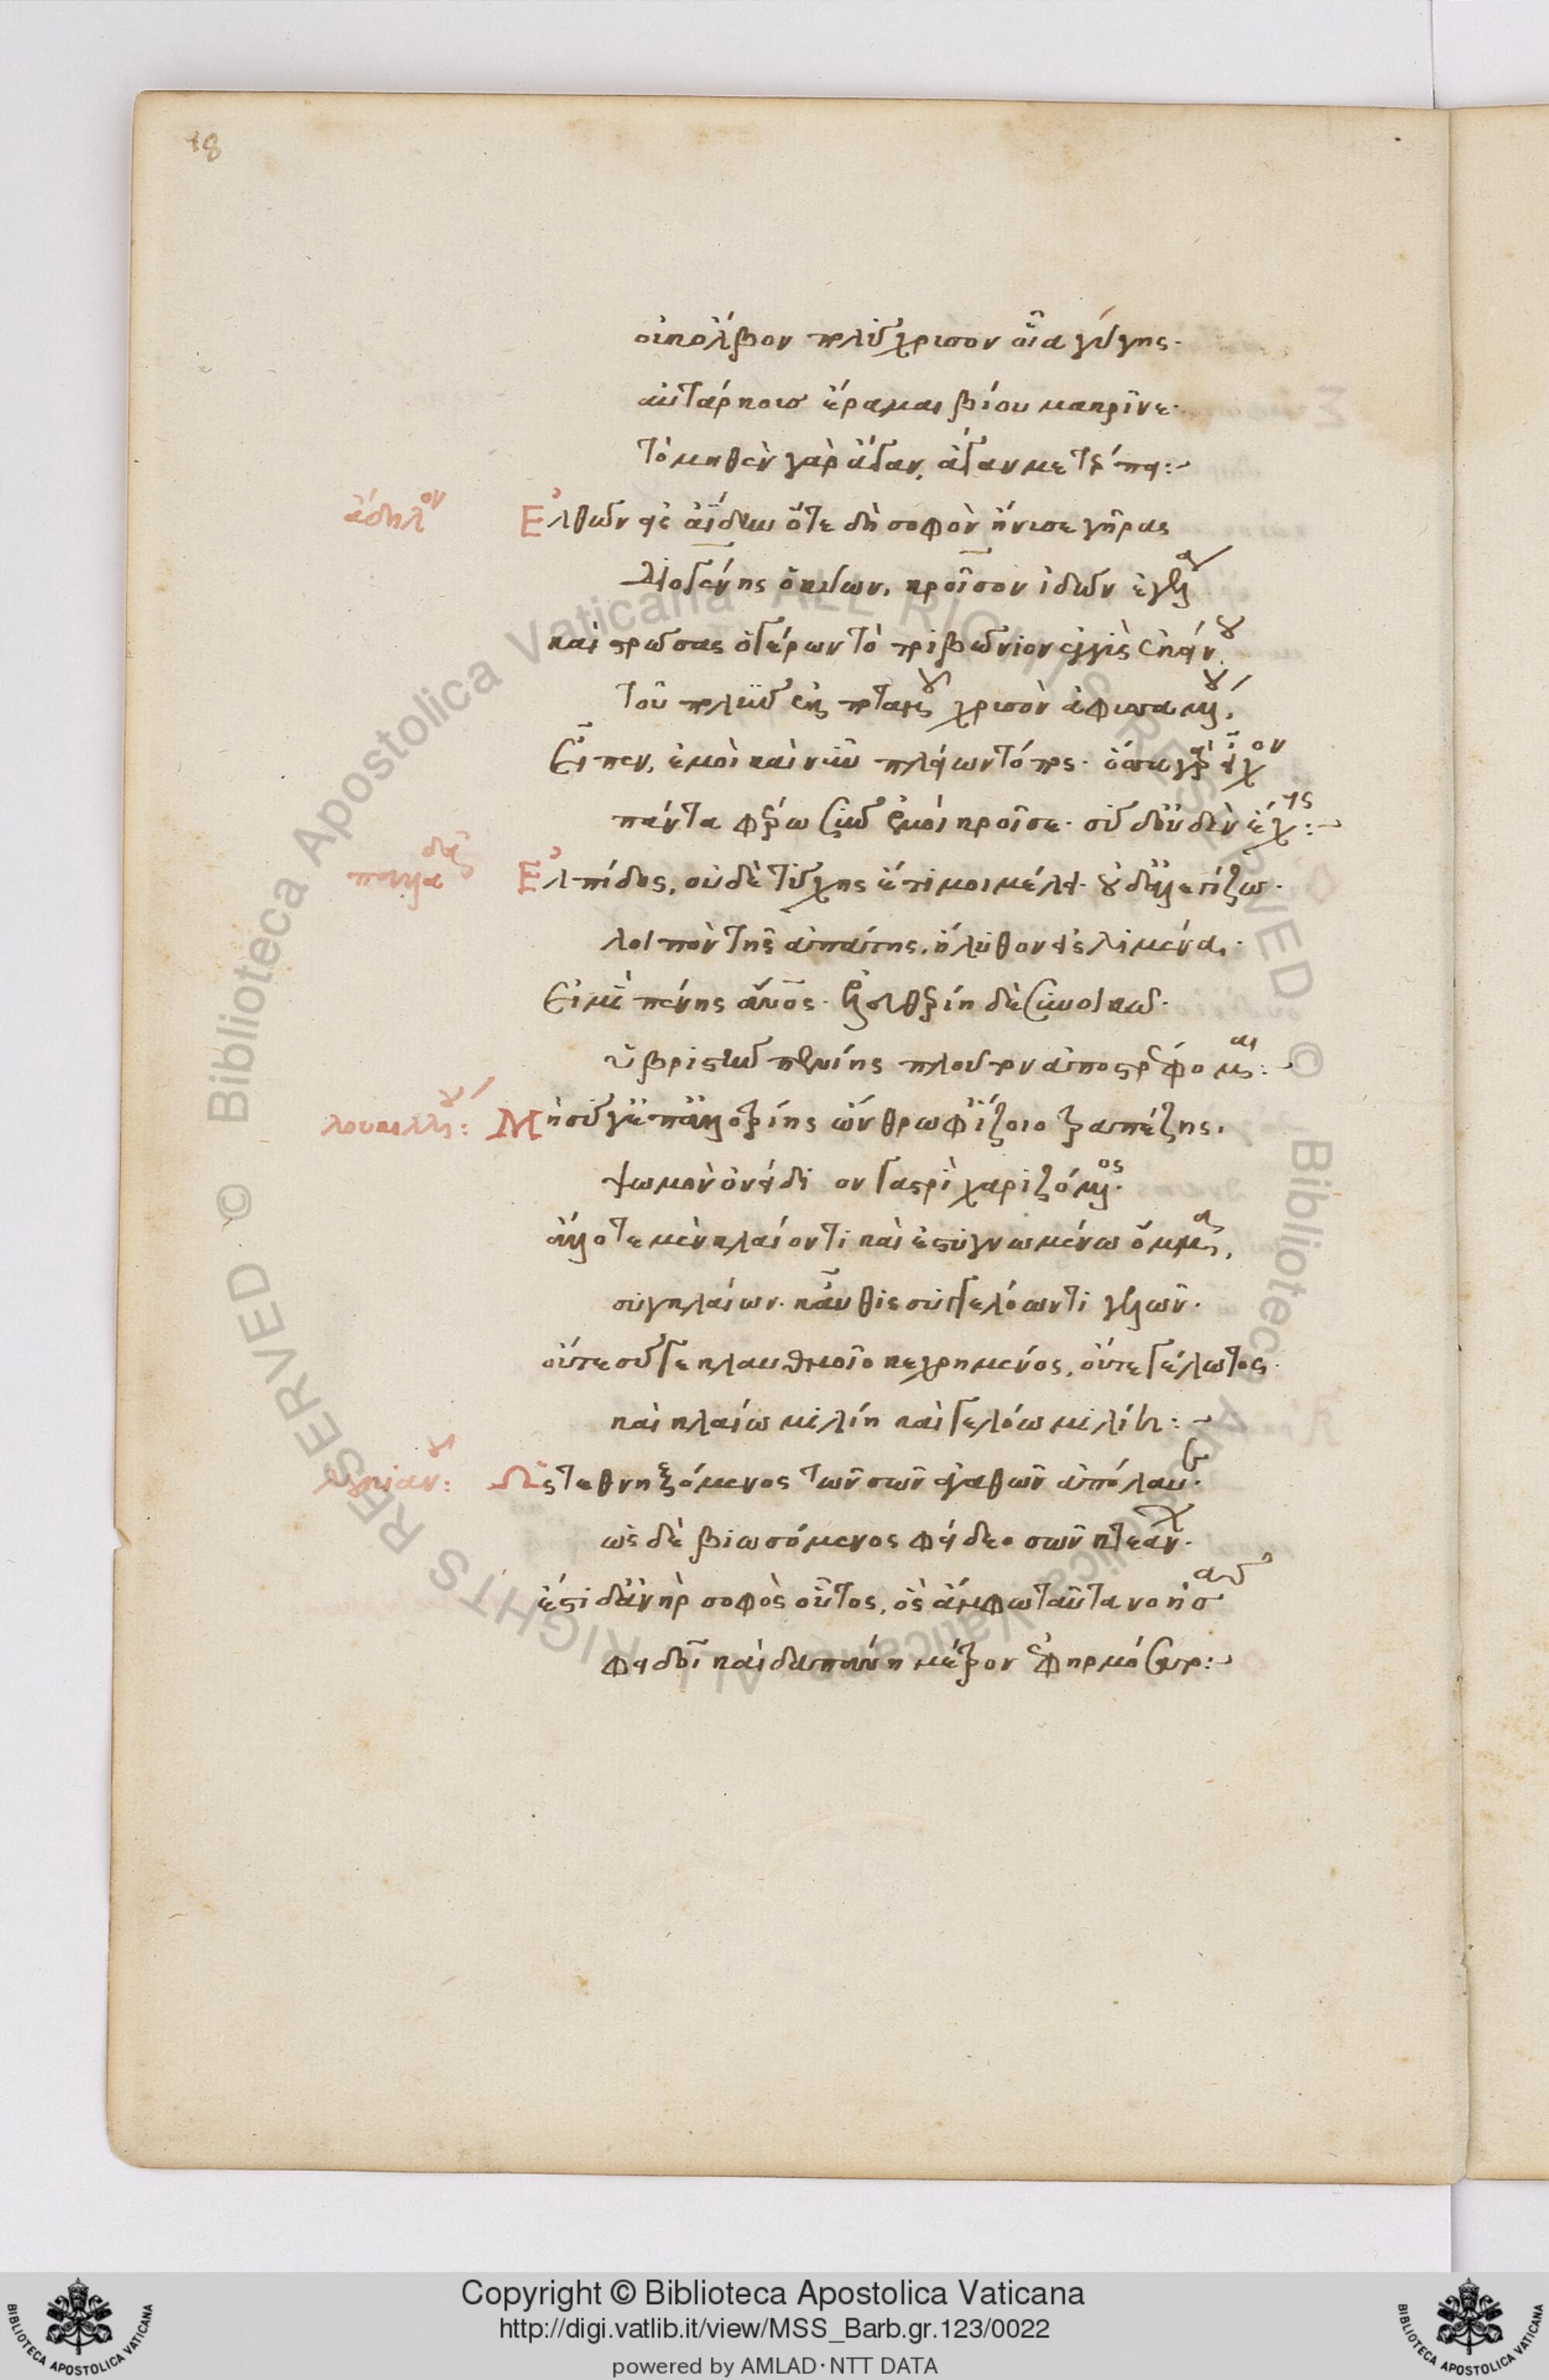 18
οὐκ ὄλβον πολύχρυσον οἷα γύγης·
αὐτάρκους ἔραμαι βίου μακρῖνε·
τὸ μηθὲν γὰρ ἄγαν, ἄγαν με τέρπει:~
ἄδηλον
Ἐλθὼν εἰς ἀΐδην ὅτε δὴ σοφὸν ἤνυσε γῆρας
Διογένης ὁ κύων, κροῖσον ἰδὼν ἐγέλα
καὶ στρώσας ὁ γέρων τὸ τριβώνιον ἐγγὺς ἐκείνου
τοῦ πολὺν ἐκ ποταμοῦ χρυσὸν ἀφυσαμένου,
Εἶπεν, ἐμοὶ καὶ νῦν πλείων τόπος· ὅσσα γὰρ εἶχον
πάντα φέρω σὺν ἐμοὶ κροῖσε· σὺ δ' οὐδὲν ἔχεις:~
παλλαδᾶ
Ἐλπίδος, οὐδὲ τύχης ἔτι μοι μέλει· οὐδ' ἀλεγίζω·
λοιπὸν τῆς ἀπάτης, ἤλυθον εἰς λιμένα·
Εἰμὶ πένης ἄνθρωπος· ἐλευθερίη δὲ συνοικῶ·
ὑβριστὴν πενίης πλοῦτον ἀποστρέφομαι:~
λουκιλλίου:
Μὴ σύ γ' ἐπ' ἀλλοτρίης ὤνθρωφ' ἵζοιο τραπέζης,
ψωμὸν ὀνείδιον γαστρὶ χαριζόμενος·
ἄλλοτε μὲν κλαίοντι καὶ ἐστυγνωμένω ὄμμα,
συγκλαίων· καὖθις σὺν γελόωντι γελῶν·
οὔτε σύ γε κλαυθμοῖο κεχρημένος, οὔτε γέλωτος·
καὶ κλαίω μιλίη καὶ γελόω μιλίη:~
λουκιανοῦ:
Ὡς τεθνηξόμενος τῶν σῶν ἀγαθῶν ἀπόλαυε·
ὡς δὲ βιωσόμενος φείδεο σῶν κτεάνων·
ἔστι δ' ἀνὴρ σοφὸς οὗτος, ὃς ἄμφω ταῦτα νοήσας
φειδοῖ καὶ δαπάνη μέτρον ἐφηρμόσατο:~
Copyright © Biblioteca Apostolica Vaticana
http://digi.vatlib.it/view/MSS_Barb.gr.123/0022
powered by AMLAD·NTT DATA